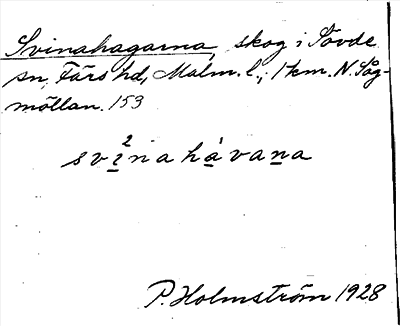 Svinahagarna, skog i Sövde
sn, Färs hd, Malm. l.; 1 km. N. Såg-
möllan. 153
svi²nahàvana
P. Holmström 1928